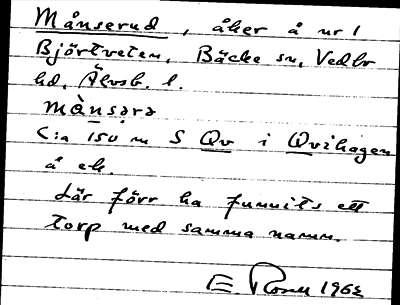 Månserud, åker å nr 1
Björtveten, Bäcke sn, Vedbo
hd, Älvsb. l.
mànsərə
C:a 150 m S Qv i Qvihagen
å ek.
Lär förr ha funnits ett
torp med samma namn.
E. Rosen 1962